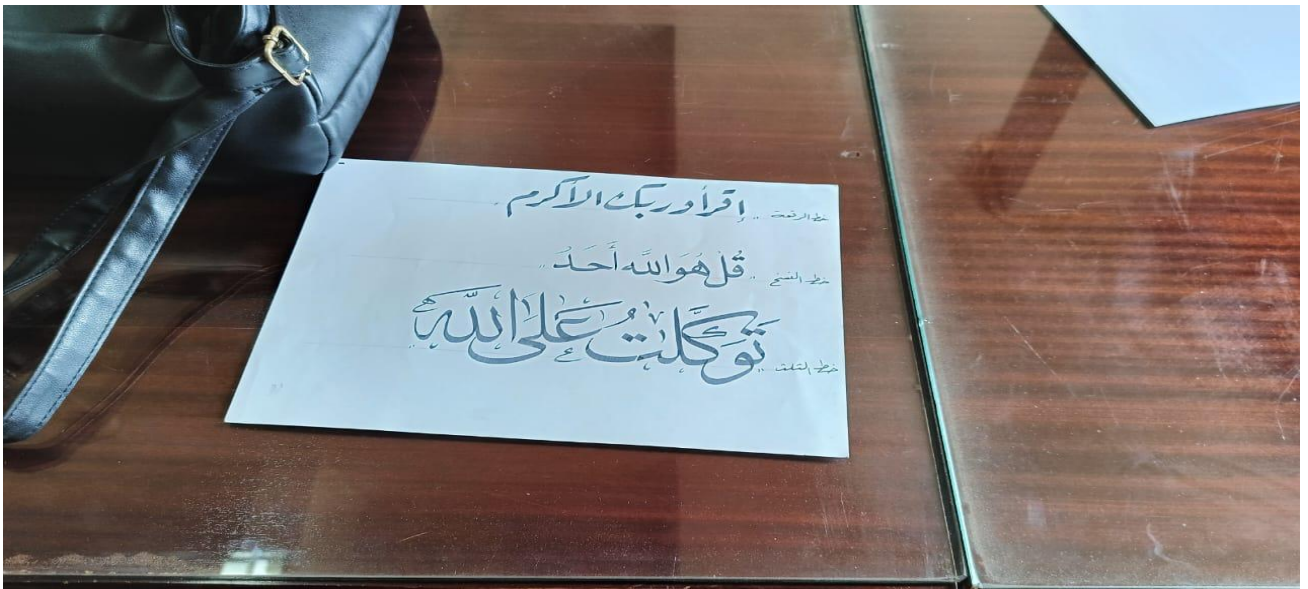 خط الرقعة ,, إقرأ وربك الأكرم
خط النسخ ,, قُل هُوَ اللَّه أَحَدُ ,,
خط الثلث ,, تَوَكَّلتُ عَلَى اللَّه